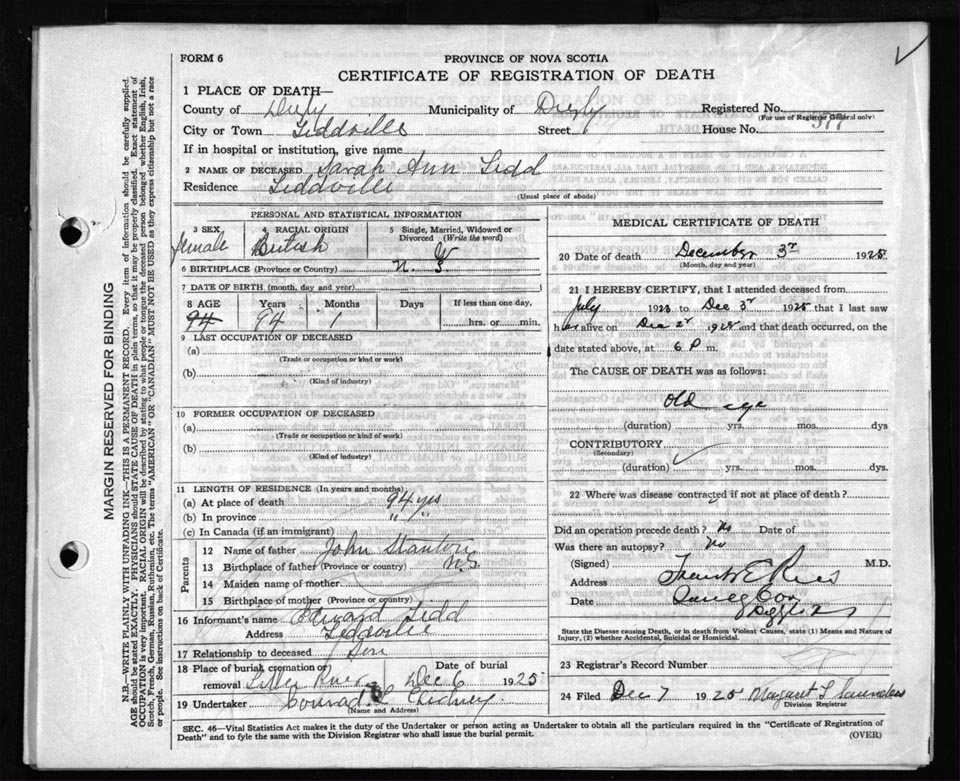 FORM 6
PROVINCE OF NOVA SCOTIA
CERTIFICATE OF REGISTRATION OF DEATH
1 PLACE OF DEATH—
County of Digby Municipality of Digby Registered No.
(For use of Registrar General only)
City or Town Tiddville Street House No. 377
If in hospital or institution, give name
2 NAME OF DECEASED Sarah Ann Tidd
Residence Tiddville
(Usual place of abode)
PERSONAL AND STATISTICAL INFORMATION
3 SEX female
RACIAL ORIGIN British
5 Single, Married, Widowed or Divorced (Write the word) W
6 BIRTHPLACE (Province or Country) N. S.
7 DATE OF BIRTH (month, day and year)
8 AGE Years Months Days If less than one day,
94 94 1 hrs. or min.
9 LAST OCCUPATION OF DECEASED
(a)
(Trade or occupation or kind or work)
(b)
(Kind of industry)
10 FORMER OCCUPATION OF DECEASED
(a)
(Trade or occupation or kind of work)
(b)
(Kind of industry)
11 LENGTH OF RESIDENCE (In years and months)
(a) At place of death 94 yrs
(b) In province " "
(c) In Canada (if an immigrant)
Parents
12 Name of father John Stanton
13 Birthplace of father (Province or country) N.S.
14 Maiden name of mother
15 Birthplace of mother (Province or country)
16 Informant's name Edward Tidd
Address Tiddville
17 Relationship to deceased Son
18 Place of burial, cremation or removal Little River
Date of burial Dec 6 1925
19 Undertaker Conrad
(Name and Address)
MEDICAL CERTIFICATE OF DEATH
20 Date of death December 3r 1925
(Month, day and year)
21 I HEREBY CERTIFY, that I attended deceased from
July to Dec 3r 1925 that I last saw
her alive on Dec 2r and that death occurred, on the
date stated above, at 6 P m.
The CAUSE OF DEATH was as follows:
Old age
(duration) yrs. mos. dys
CONTRIBUTORY
(Secondary)
(duration) yrs. mos. dys.
22 Where was disease contracted if not at place of death?
Did an operation precede death? No Date of
Was there an autopsy? No
(Signed) Frank E Rice M.D.
Address Sandy Cove
Date
State the Disease causing Death, or in death from Violent Causes, state (1) Means and Nature of
Injury, (2) whether Accidental, Suicidal or Homicidal.
23 Registrar's Record Number
24 Filed Dec 7 1925 Margaret L Saunders
Division Registrar
SEC. 46—Vital Statistics Act makes it the duty of the Undertaker or person acting as Undertaker to obtain all the particulars required in the "Certificate of Registration of
Death" and to fyle the same with the Division Registrar who shall issue the burial permit.
(OVER)
MARGIN RESERVED FOR BINDING
N.B.—WRITE PLAINLY WITH UNFADING INK—THIS IS A PERMANENT RECORD. Every item of information should be carefully supplied.
AGE should be stated EXACTLY. PHYSICIANS should STATE CAUSE OF DEATH in plain terms, so that it may be properly classified. Exact statement of
OCCUPATION is very important. RACIAL ORIGIN will be described by stating to what people or tongue the deceased person belonged whether English, Irish,
Scotch, French, German, Russian, Ruthenian, etc. The terms "AMERICAN" OR "CANADIAN" MUST NOT BE USED as they express citizenship but not a race
or people. See instructions on back of Certificate.